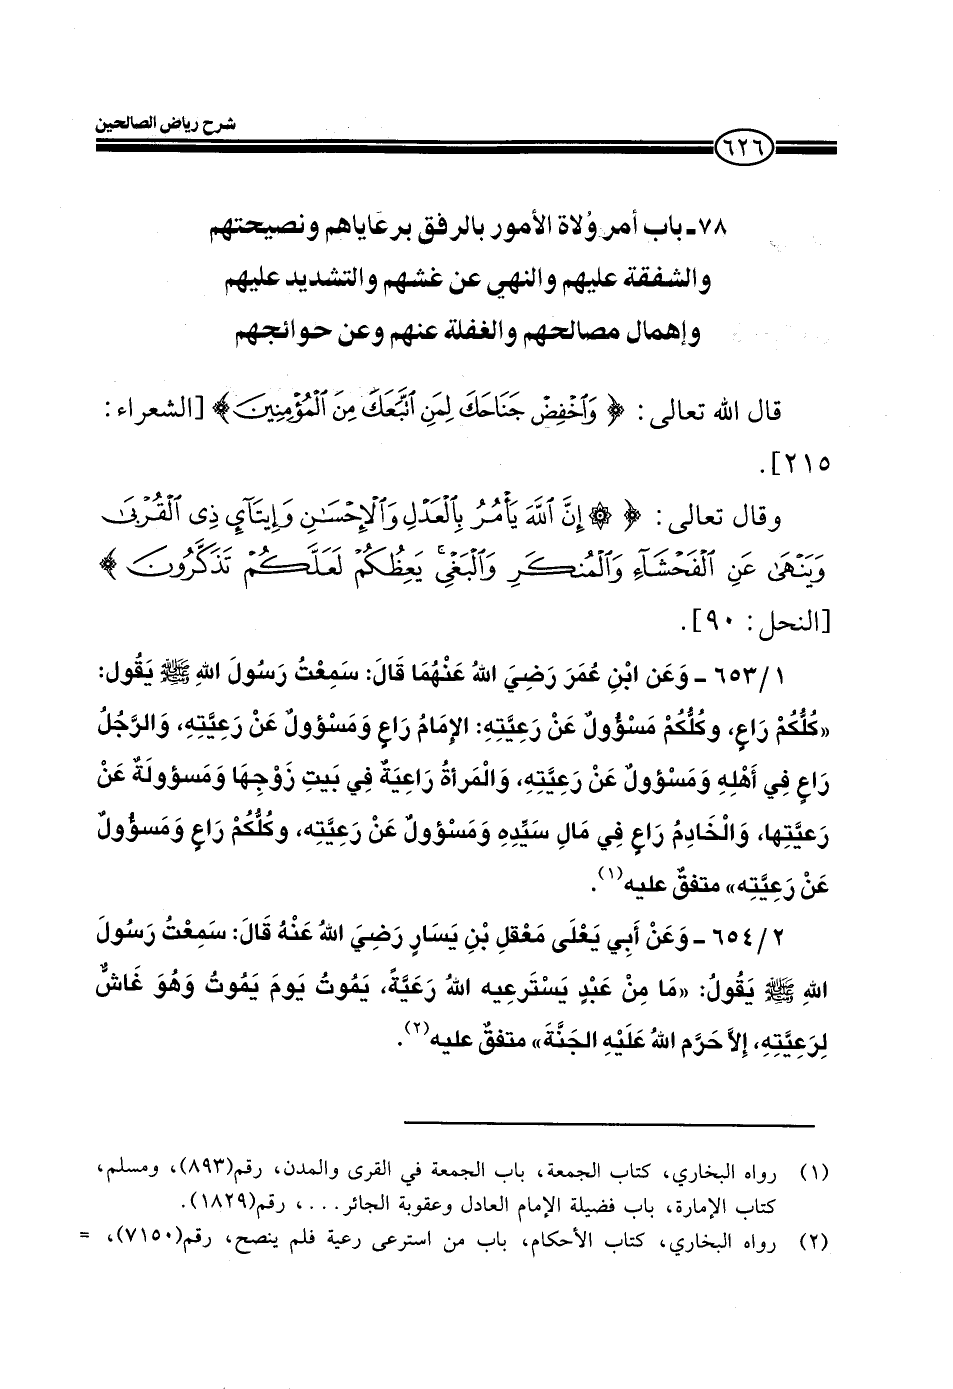 شرح رياض الصالحين
٦٢٦
٧٨ـ باب أمر وُلاة الأمور بالرفق برعاياهم ونصيحتهم
والشفقة عليهم والنهي عن غشهم والتشديد عليهم
وإهمال مصالحهم والغفلة عنهم وعن حوائجهم
قال الله تعالى: ﴿ وَٱخْفِضْ جَنَاحَكَ لِمَنِ ٱتَّبَعَكَ مِنَ ٱلْمُؤْمِنِينَ﴾ [الشعراء:
٢١٥].
وقال تعالى: ﴿ ۞ إِنَّ ٱللَّهَ يَأْمُرُ بِٱلْعَدْلِ وَٱلْإِحْسَٰنِ وَإِيتَآيِٕ ذِى ٱلْقُرْبَىٰ
وَيَنْهَىٰ عَنِ ٱلْفَحْشَآءِ وَٱلْمُنكَرِ وَٱلْبَغْىِۚ يَعِظُكُمْ لَعَلَّكُمْ تَذَكَّرُونَ ﴾
[النحل: ٩٠].
٦٥٣/١ ـ وَعَن ابْنِ عُمَرَ رَضِيَ اللهُ عَنْهُمَا قَالَ: سَمِعْتُ رَسُولَ اللهِ ﷺ يَقُول:
«كُلُّكُمْ رَاعٍ، وكُلُّكُمْ مَسْؤُولٌ عَنْ رَعِيَّتِهِ: الإمَامُ رَاعٍ وَمَسْؤولٌ عَنْ رَعِيَّتِهِ، وَالرَّجُلُ
رَاعٍ فِي أَهْلِهِ وَمَسْؤولٌ عَنْ رَعِيَّتِهِ، وَالْمَرأةُ رَاعِيَةٌ فِي بَيتِ زَوْجِهَا وَمَسؤولَةٌ عَنْ
رَعيَّتِها، وَالْخَادِمُ رَاعٍ فِي مَالِ سَيِّدِهِ وَمَسْؤولٌ عَنْ رَعِيَّتِه، وكُلُّكُمْ رَاعٍ وَمَسؤُولٌ
عَنْ رَعِيَّتِه» متفقٌ عليه(١).
٦٥٤/٢ ـ وَعَنْ أَبِي يَعْلَى مَعْقِلِ بْنِ يَسَارٍ رَضِيَ اللهُ عَنْهُ قَالَ: سَمِعْتُ رَسُولَ
اللهِ ﷺ يَقُولُ: «مَا مِنْ عَبْدٍ يَسْتَرعِيه اللهُ رَعَيَّةً، يَمُوتُ يَومَ يَمُوتُ وَهُوَ غَاشٌّ
لِرَعِيَّتِهِ، إلاَّ حَرَّم اللهُ عَلَيْهِ الجَنَّةَ» متفقٌ عليه(٢).
(١) رواه البخاري، كتاب الجمعة، باب الجمعة في القرى والمدن، رقم(٨٩٣)، ومسلم،
كتاب الإمارة، باب فضيلة الإمام العادل وعقوبة الجائر...، رقم(١٨٢٩).
(٢) رواه البخاري، كتاب الأحكام، باب من استرعى رعية فلم ينصح، رقم(٧١٥٠)، =